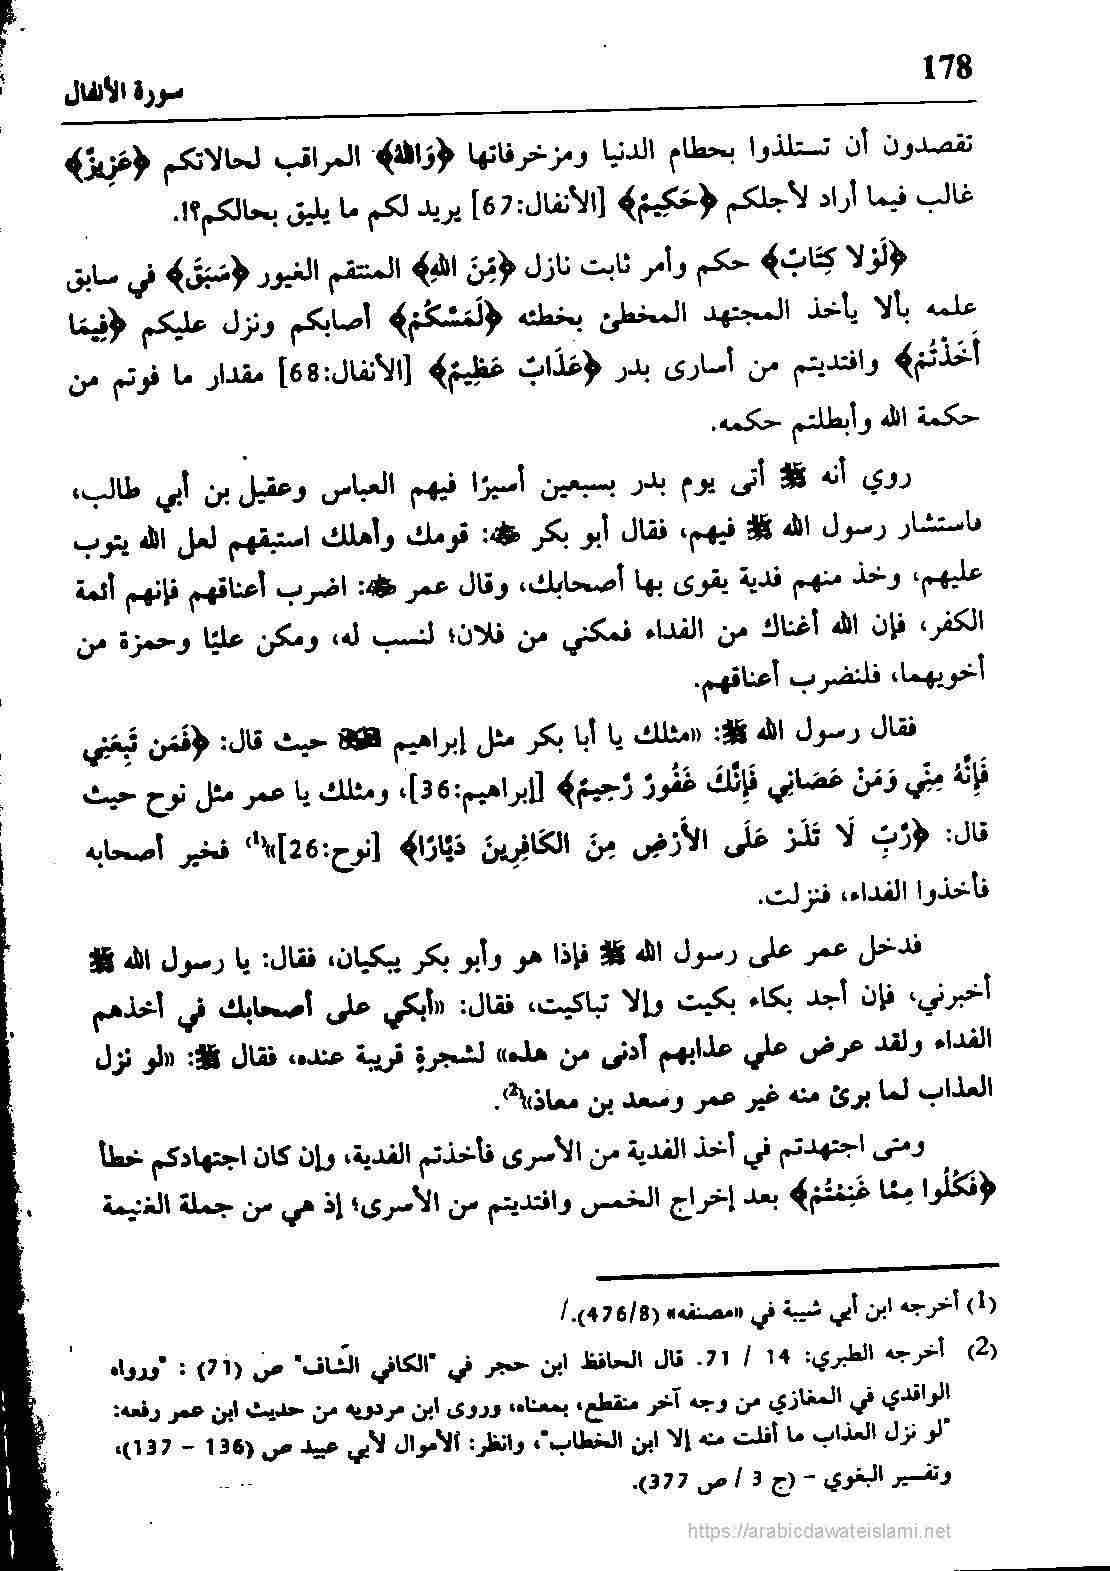 178
سورة الأنفال
تقصدون أن تستلذوا بحطام الدنيا ومزخرفاتها ﴿وَاللَّهُ﴾ المراقب لحالاتكم ﴿عَزِيزٌ﴾
غالب فيما أراد لأجلكم ﴿حَكِيمٌ﴾ [الأنفال:67] يريد لكم ما يليق بحالكم؟!.
﴿لَوْلا كِتَابٌ﴾ حكم وأمر ثابت نازل ﴿مِّنَ اللهِ﴾ المنتقم الغيور ﴿سَبَقَ﴾ في سابق
علمه بألا يأخذ المجتهد المخطئ بخطئه ﴿لَمَسَّكُمْ﴾ أصابكم ونزل عليكم ﴿فِيمَا
أَخَذْتُمْ﴾ وافتديتم من أسارى بدر ﴿عَذَابٌ عَظِيمٌ﴾ [الأنفال:68] مقدار ما فوتم من
حكمة الله وأبطلتم حكمه.
روي أنه ﷺ أتى يوم بدر بسبعين أسيرًا فيهم العباس وعقيل بن أبي طالب،
فاستشار رسول الله ﷺ فيهم، فقال أبو بكر ﵁: قومك وأهلك استبقهم لعل الله يتوب
عليهم، وخذ منهم فدية يقوى بها أصحابك، وقال عمر ﵁: اضرب أعناقهم فإنهم أئمة
الكفر، فإن الله أغناك من الفداء فمكني من فلان؛ لنسب له، ومكن عليًا وحمزة من
أخويهما، فلنضرب أعناقهم.
فقال رسول الله ﷺ: «مثلك يا أبا بكر مثل إبراهيم حيث قال: ﴿فَمَن تَبِعَنِي
فَإِنَّهُ مِنِّي وَمَنْ عَصَانِي فَإِنَّكَ غَفُورٌ رَّحِيمٌ﴾ [إبراهيم:36]، ومثلك يا عمر مثل نوح حيث
قال: ﴿رَّبِّ لَا تَذَرْ عَلَى الأَرْضِ مِنَ الكَافِرِينَ دَيَّارًا﴾ [نوح:26]»(1) فخير أصحابه
فأخذوا الفداء، فنزلت.
فدخل عمر على رسول الله ﷺ فإذا هو وأبو بكر يبكيان، فقال: يا رسول الله ﷺ
أخبرني، فإن أجد بكاء بكيت وإلا تباكيت، فقال: «أبكي على أصحابك في أخذهم
الفداء ولقد عرض علي عذابهم أدنى من هذه» لشجرةٍ قريبة عنده، فقال ﷺ: «لو نزل
العذاب لما برئ منه غير عمر وسعد بن معاذ»(2).
ومتى اجتهدتم في أخذ الفدية من الأسرى فأخذتم الفدية، وإن كان اجتهادكم خطأ
﴿فَكُلُوا مِمَّا غَنِمْتُمْ﴾ بعد إخراج الخمس وافتديتم من الأسرى؛ إذ هي من جملة الغنيمة
(1) أخرجه ابن أبي شيبة في «مصنفه» (476/8).
(2) أخرجه الطبري: 14 / 71. قال الحافظ ابن حجر في "الكافي الشاف" ص (71) : "ورواه
الواقدي في المغازي من وجه آخر منقطع، بمعناه، وروى ابن مردويه من حديث ابن عمر رفعه:
"لو نزل العذاب ما أفلت منه إلا ابن الخطاب"، وانظر: الأموال لأبي عبيد ص (136 - 137)،
وتفسير البغوي - (ج 3 / ص 377).
https://arabicdawateislami.net